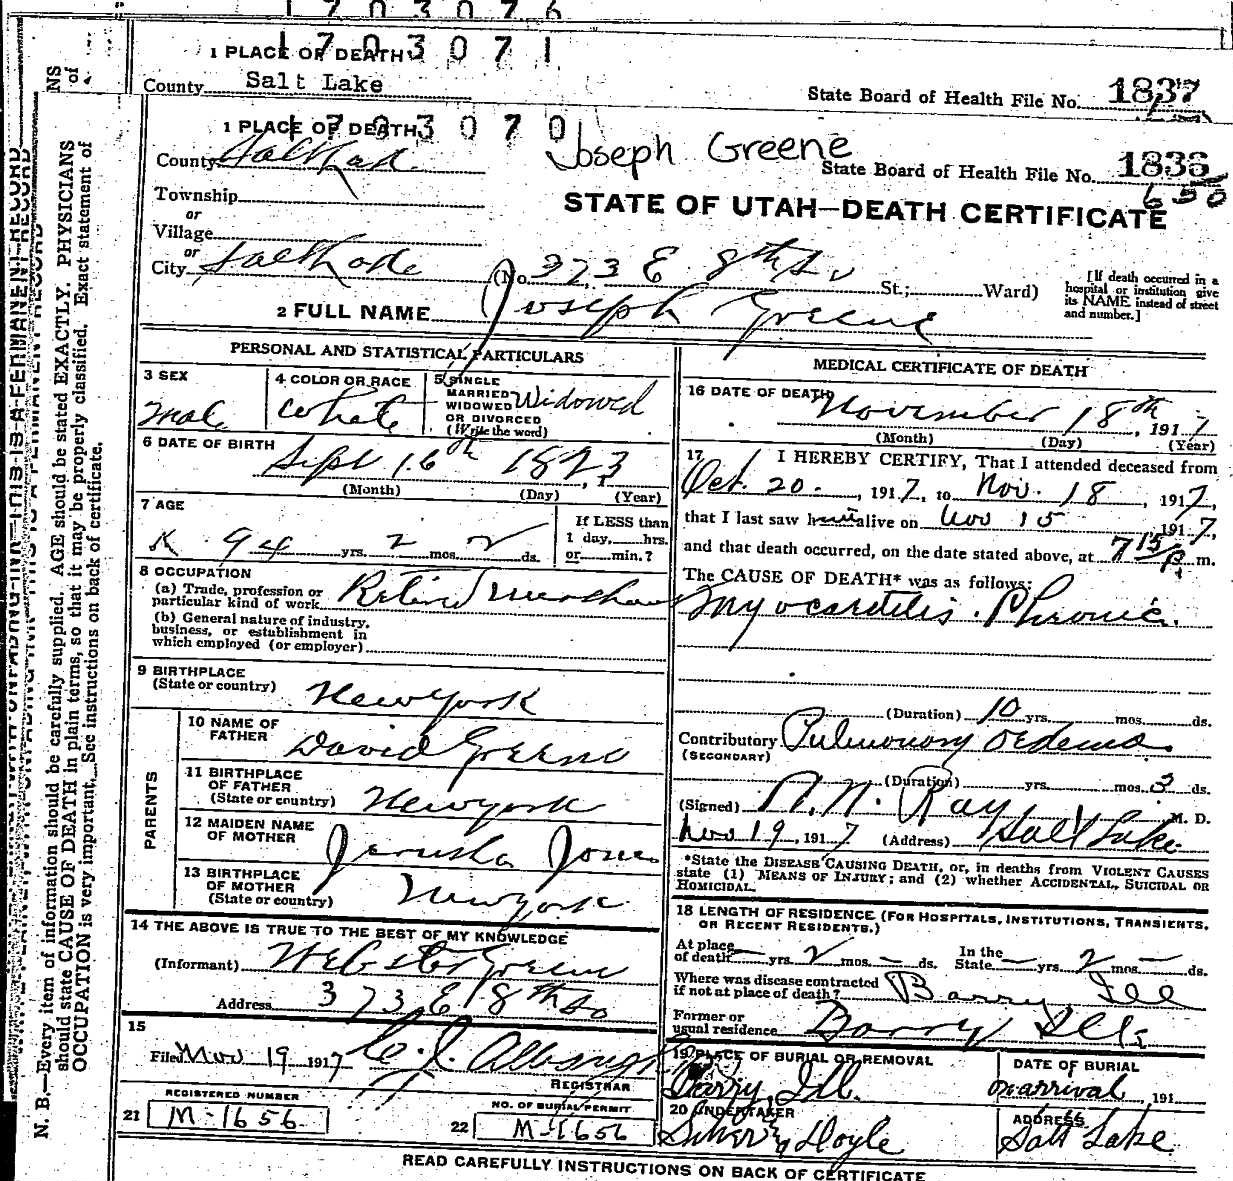 1 7 0 3 0 7 6
1 PLACE OF DEATH 1 7 0 3 0 7 1
County Salt Lake
State Board of Health File No. 1837
1 PLACE OF DEATH 1 7 0 3 0 7 0
Joseph Greene
County Salt Lake
State Board of Health File No. 1836
650
Township
STATE OF UTAH—DEATH CERTIFICATE
or
Village
or
City Salt Lake (No. 373 E 8th So St.; Ward)
[If death occurred in a hospital or institution give its NAME instead of street and number.]
2 FULL NAME Joseph Greene
PERSONAL AND STATISTICAL PARTICULARS
3 SEX
Male
4 COLOR OR RACE
White
5 SINGLE
MARRIED
WIDOWED
OR DIVORCED
(Write the word)
Widowed
6 DATE OF BIRTH
Sept 16th 1823
(Month) (Day) (Year)
7 AGE
94 yrs. 2 mos. 2 ds.
If LESS than
1 day, hrs.
or min.?
8 OCCUPATION
(a) Trade, profession or
particular kind of work Retired Merchant
(b) General nature of industry,
business, or establishment in
which employed (or employer)
9 BIRTHPLACE
(State or country) New York
PARENTS
10 NAME OF
FATHER David Greene
11 BIRTHPLACE
OF FATHER
(State or country) New York
12 MAIDEN NAME
OF MOTHER Jerusha Jones
13 BIRTHPLACE
OF MOTHER
(State or country) New York
14 THE ABOVE IS TRUE TO THE BEST OF MY KNOWLEDGE
(Informant) Webster Greene
Address 373 E 8th So
15
Filed Nov 19 1917
REGISTRAR
REGISTERED NUMBER
21 M-1656
NO. OF BURIAL PERMIT
22 M-1656
MEDICAL CERTIFICATE OF DEATH
16 DATE OF DEATH November 18th, 1917
(Month) (Day) (Year)
17 I HEREBY CERTIFY, That I attended deceased from
Oct. 20., 1917, to Nov. 18, 1917,
that I last saw him alive on Nov 15 1917,
and that death occurred, on the date stated above, at 7 15 P. m.
The CAUSE OF DEATH* was as follows:
Myocarditis. Chronic.
(Duration) 10 yrs. mos. ds.
Contributory Pulmonary Oedema.
(SECONDARY)
(Duration) yrs. mos. 3 ds.
(Signed) Ray M. D.
Nov 19, 1917 (Address) Salt Lake
*State the DISEASE CAUSING DEATH, or, in deaths from VIOLENT CAUSES
state (1) MEANS OF INJURY; and (2) whether ACCIDENTAL, SUICIDAL OR
HOMICIDAL.
18 LENGTH OF RESIDENCE (FOR HOSPITALS, INSTITUTIONS, TRANSIENTS,
OR RECENT RESIDENTS.)
At place
of death — yrs. 2 mos. — ds. In the
State — yrs. 2 mos. — ds.
Where was disease contracted
if not at place of death? Barry Ill
Former or
usual residence Barry Ills.
19 PLACE OF BURIAL OR REMOVAL
Barry, Ill.
DATE OF BURIAL
on arrival, 191
20 UNDERTAKER
Doyle
ADDRESS
Salt Lake
READ CAREFULLY INSTRUCTIONS ON BACK OF CERTIFICATE
N. B.—Every item of information should be carefully supplied. AGE should be stated EXACTLY. PHYSICIANS
should state CAUSE OF DEATH in plain terms, so that it may be properly classified. Exact statement of
OCCUPATION is very important. See instructions on back of certificate.